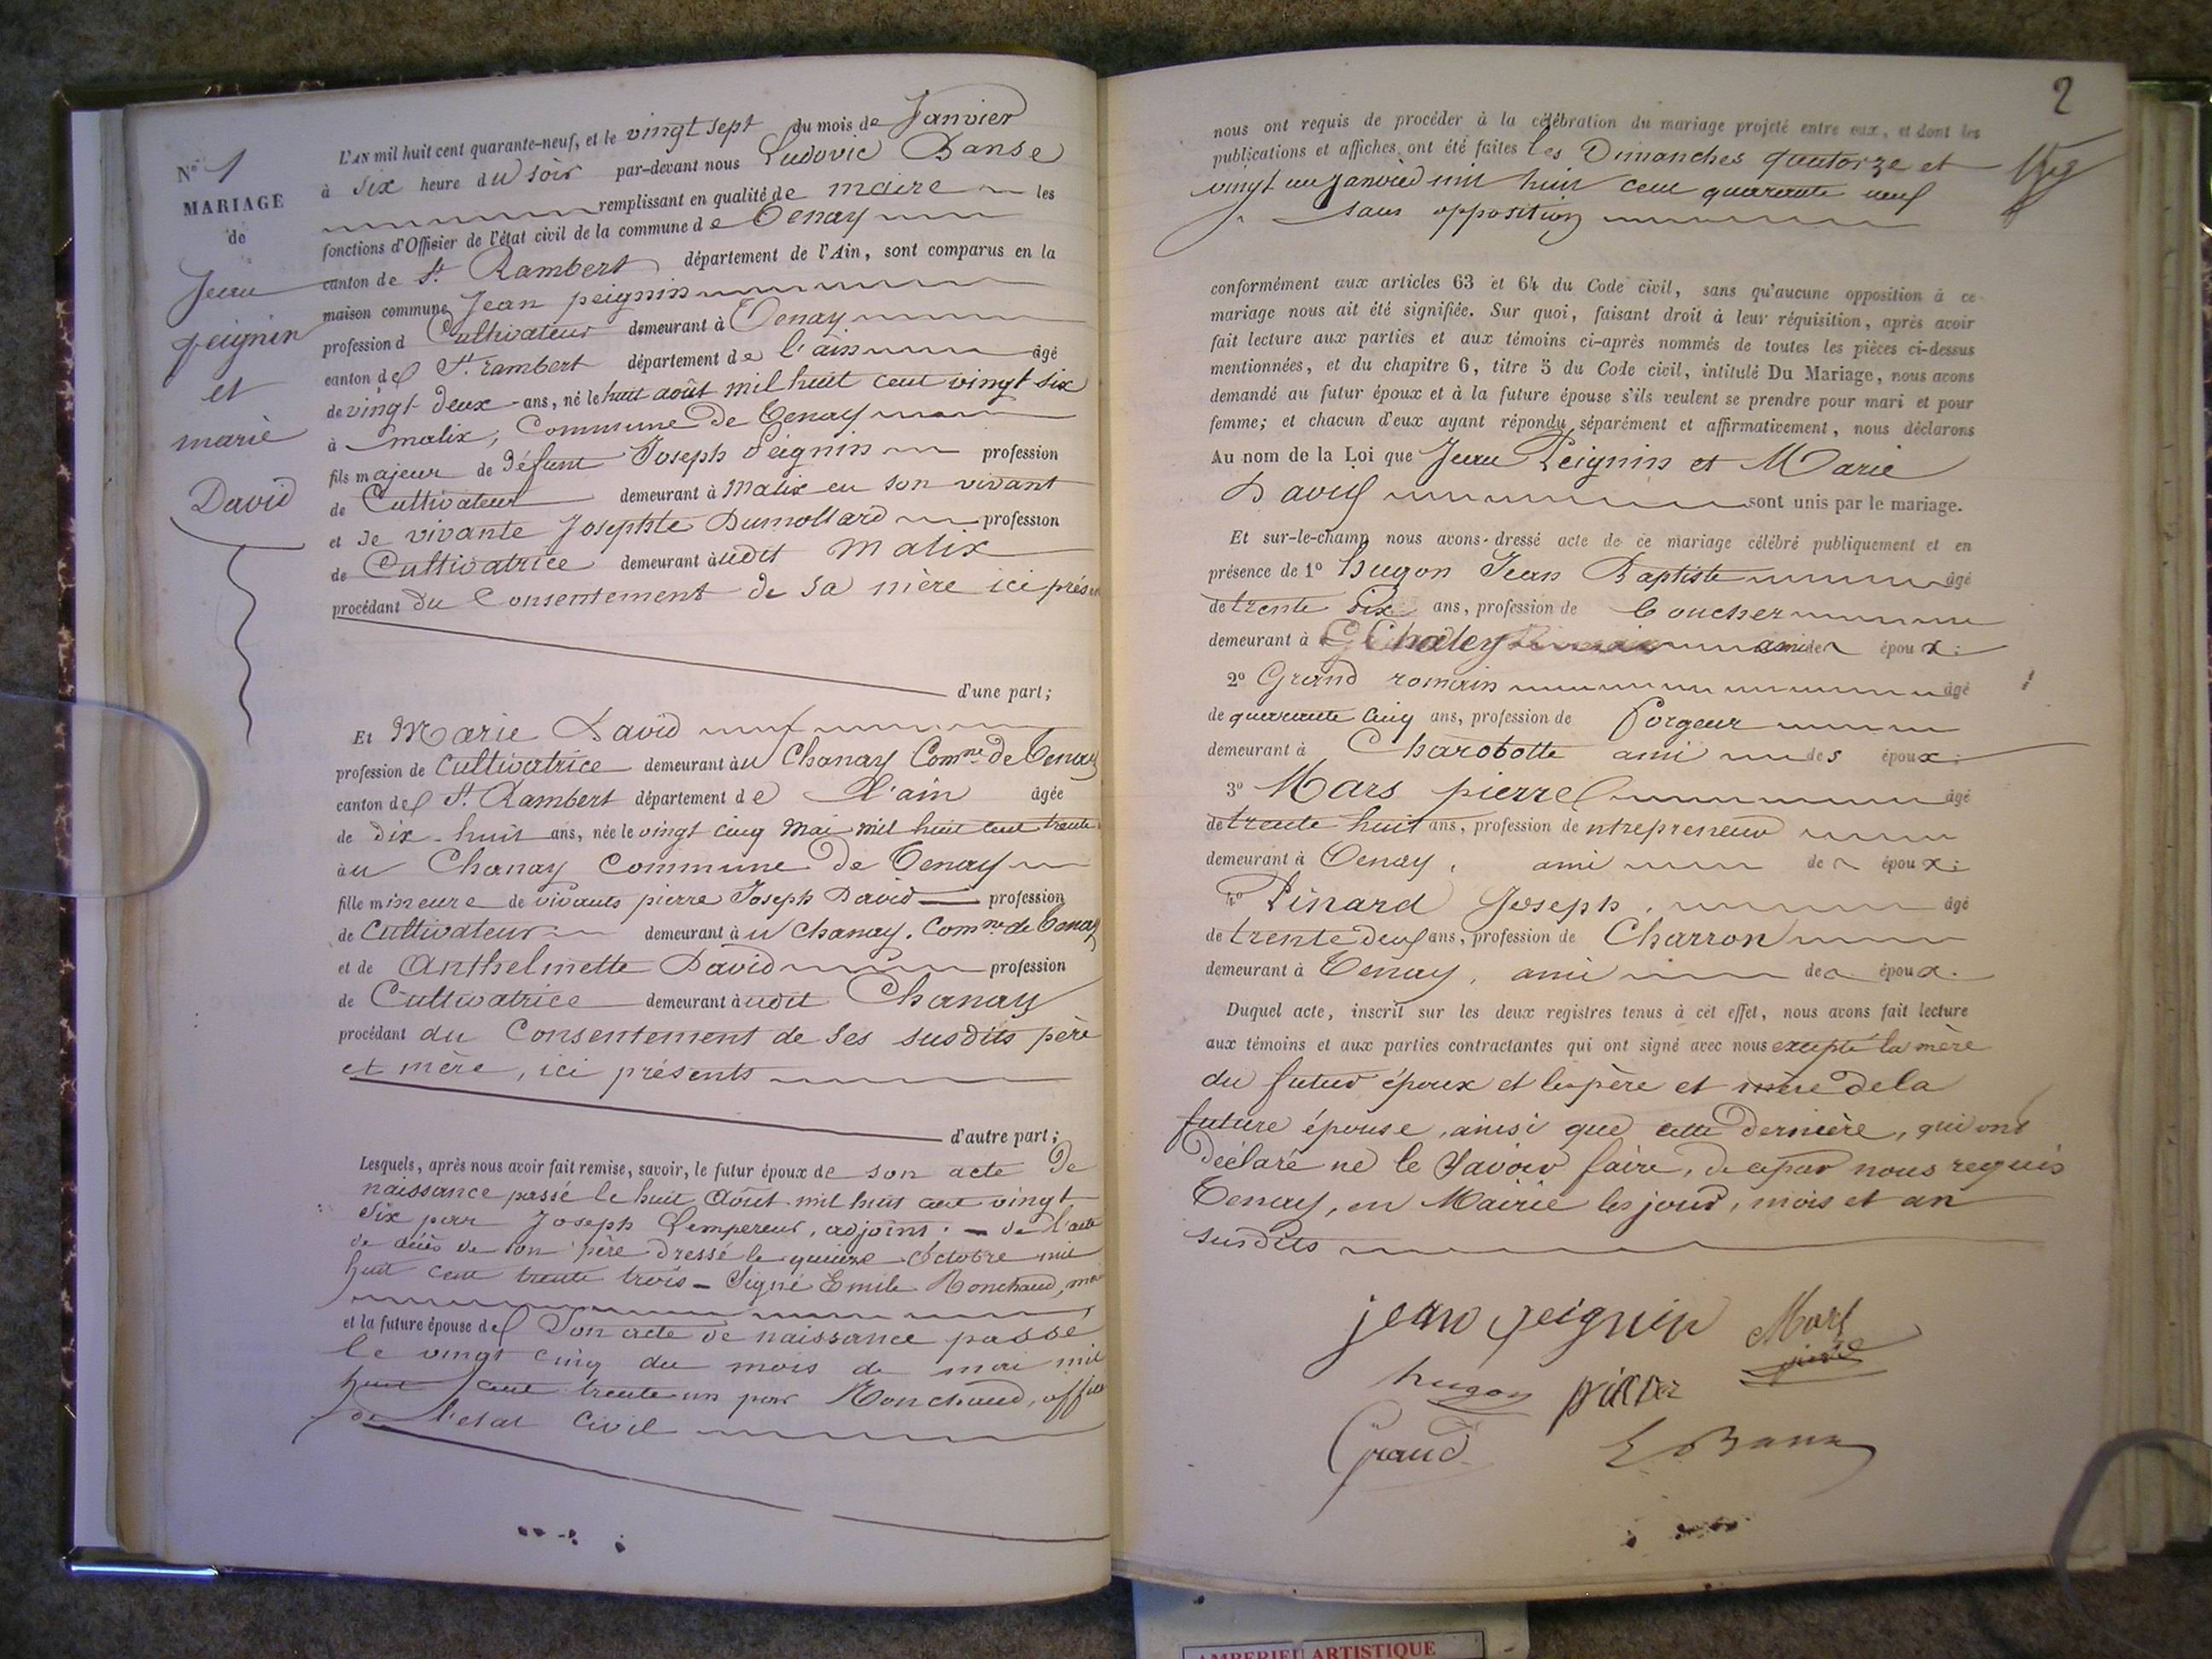 N° 1
MARIAGE
de
Jean
peignin
et
marie
David
L'AN mil huit cent quarante-neuf, et le vingt sept du mois de Janvier
à Six heure du soir par-devant nous Ludovic Banse
remplissant en qualité de maire les
fonctions d'Officier de l'état civil de la commune de Tenay
canton de St Rambert département de l'Ain, sont comparus en la
maison commune Jean peignin
profession d Cultivateur demeurant à Tenay
canton de St rambert département de l'ain âgé
de vingt deux ans, né le huit août mil huit cent vingt six
à malix, Commune de Tenay
fils majeur de défunt Joseph Peignin profession
de Cultivateur demeurant à Malix en son vivant
et de vivante Josephte Dumollard profession
de Cultivatrice demeurant audit Malix
procédant du Consentement de sa mère ici
d'une part;
Et Marie David
profession de Cultivatrice demeurant au Chanay Comne de Tenay
canton de St Rambert département de l'ain âgée
de dix-huit ans, née le vingt cinq mai mil huit cent trente
au Chanay Commune de Tenay
fille mineure de vivants pierre Joseph David profession
de Cultivateur demeurant au Chanay. Comne de Tenay
et de Anthelmette David profession
de Cultivatrice demeurant audit Chanay
procédant du Consentement de ses susdits père
et mère, ici présents
d'autre part;
Lesquels, après nous avoir fait remise, savoir, le futur époux de son acte de
naissance passé le huit Août mil huit cent vingt
Six par Joseph Lempereur, adjoint; - de l'acte
de décès de son père dressé le quinze Octobre mil
huit cent trente trois - Signé Emile Ronchaud,
et la future épouse de Son acte de naissance passé
le vingt cinq du mois de mai mil
huit cent trente un par Ronchaud,
de l'etat Civil
2
nous ont requis de procéder à la célébration du mariage projeté entre eux, et dont les
publications et affiches ont été faites les Dimanches quatorze et
vingt un janvier mil huit cent quarante neuf
sans opposition
conformément aux articles 63 et 64 du Code civil, sans qu'aucune opposition à ce
mariage nous ait été signifiée. Sur quoi, faisant droit à leur réquisition, après avoir
fait lecture aux parties et aux témoins ci-après nommés de toutes les pièces ci-dessus
mentionnées, et du chapitre 6, titre 5 du Code civil, intitulé Du Mariage, nous avons
demandé au futur époux et à la future épouse s'ils veulent se prendre pour mari et pour
femme; et chacun d'eux ayant répondu séparément et affirmativement, nous déclarons
Au nom de la Loi que Jean Peignin et Marie
David sont unis par le mariage.
Et sur-le-champ nous avons dressé acte de ce mariage célébré publiquement et en
présence de 1° hugon Jean Baptiste âgé
de trente Six ans, profession de boucher
demeurant à Chaley ami des époux;
2° Grand romain âgé
de quarante cinq ans, profession de forgeur
demeurant à Charobotte ami des époux;
3° Mars pierre âgé
de trente huit ans, profession de ntrepreneur
demeurant à Tenay, ami de époux;
4° Pinard Joseph, âgé
de trente deux ans, profession de Charron
demeurant à Tenay, ami des époux.
Duquel acte, inscrit sur les deux registres tenus à cet effet, nous avons fait lecture
aux témoins et aux parties contractantes qui ont signé avec nous excepté la mère
du futur époux et les père et mère de la
future épouse, ainsi que cette dernière, qui ont
déclaré ne le Savoir faire, de ce par nous requis
Tenay, en Mairie les jour, mois et an
susdits
jean peignin Mars
pierre
hugon
Grand
AMBERIEU ARTISTIQUE